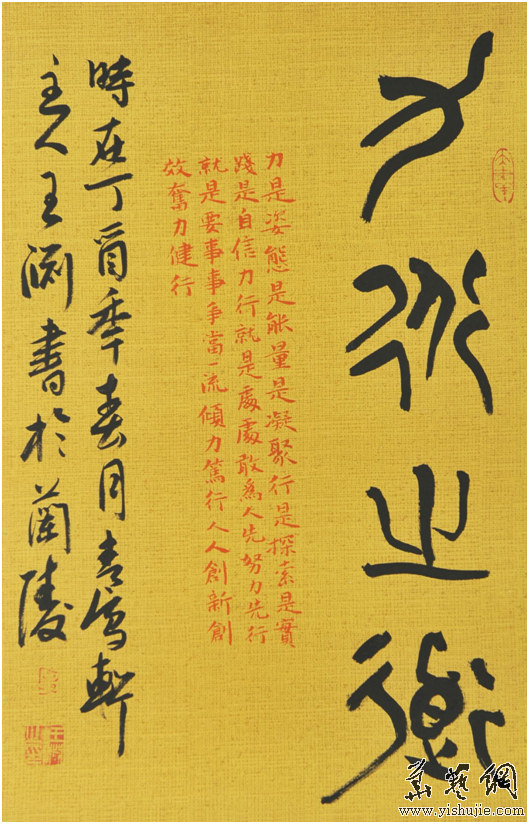 力行之道
力是姿態是能量是凝聚行是探索是實
踐是自信力行就是處處敢爲人先努力先行
就是要事事爭當一流傾力篤行人人創新創
效奮力健行
時在丁酉秊春月青鳥軒
主人王渊書於蘭陵
華藝網
www.yishujie.com